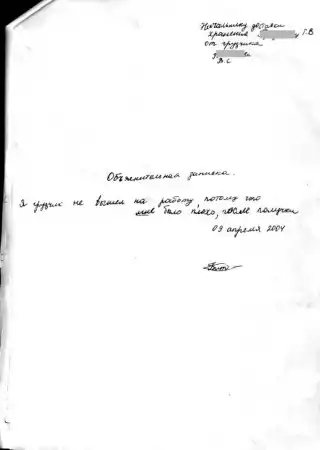 Начальнику
хранения З у Г.В
от грузчика
В.С
Объяснительная записка.
Я грузчик не вышел на работу, потому что
мне было плохо, после получки
09 апреля 2004